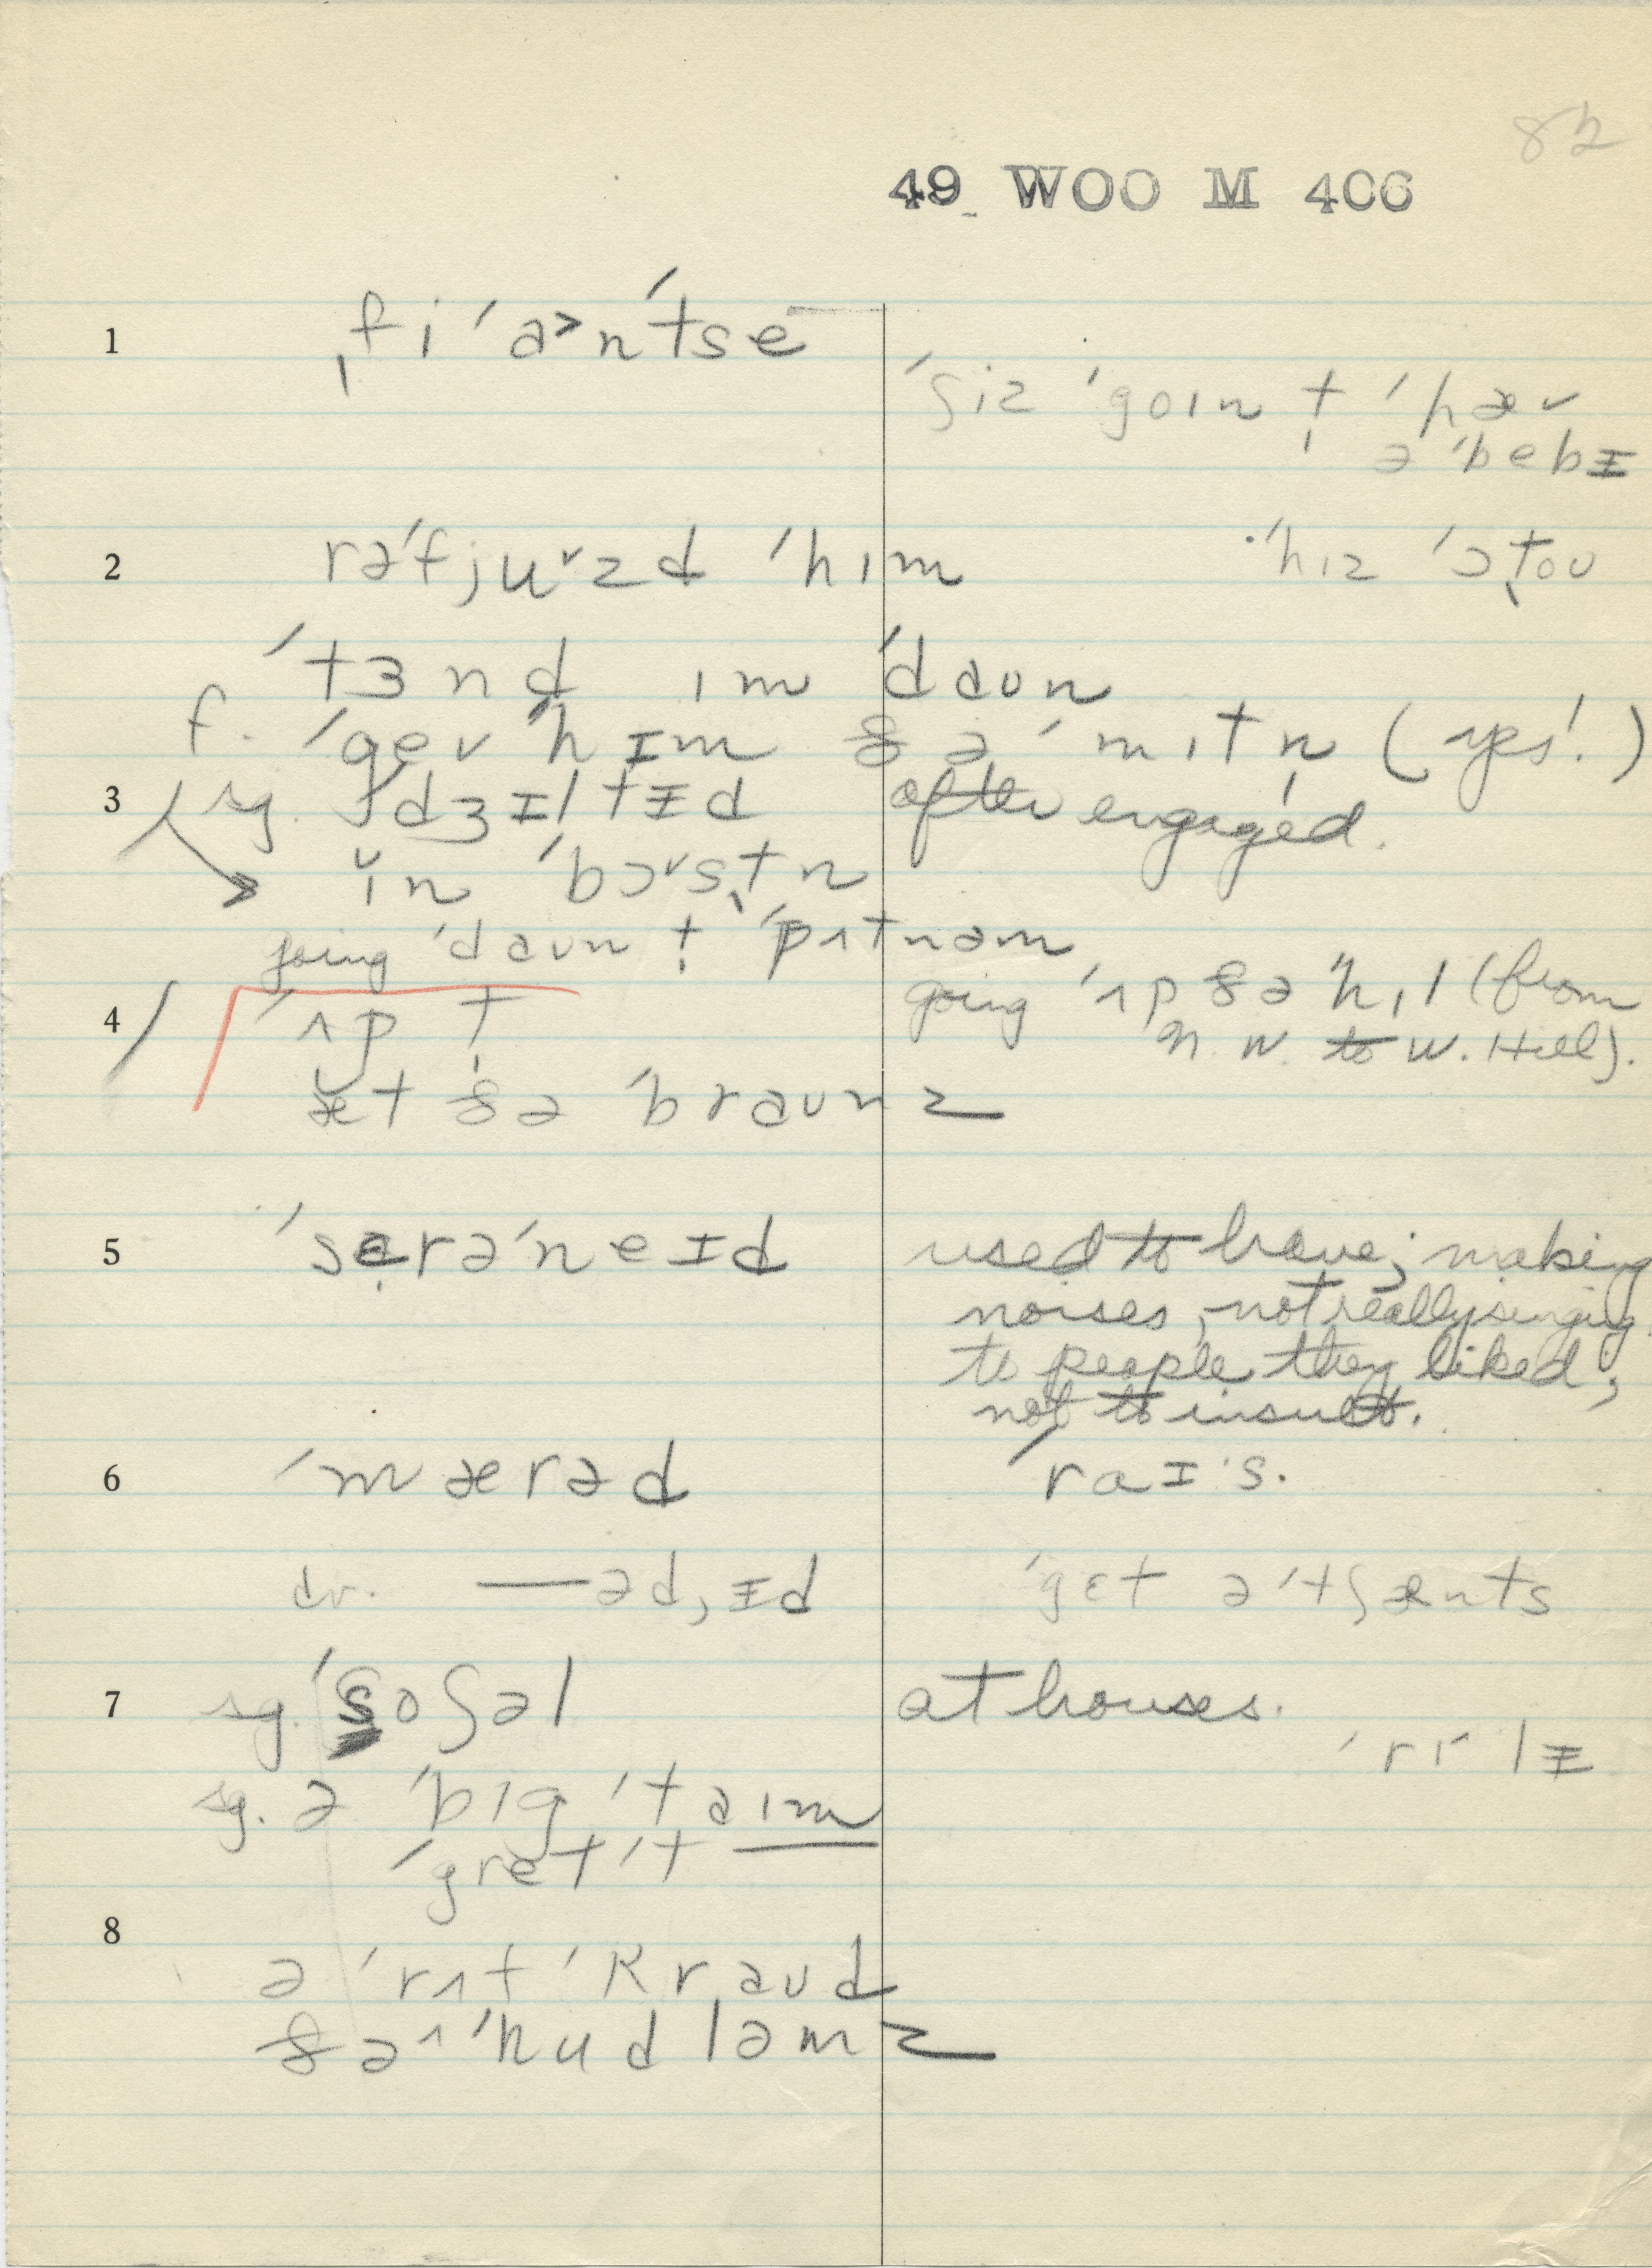 82
49 WOO M 406
1 ˌfiˈa˃nˈtse
ˈʃiz ˈgoɪn t̩ ˈhæv
ə ˈbebᵻ
2 rəˈfjuˇzd ˈhɪm
ˈhɪz ˈɔt̬oʊ
ˈtɜnd ɪm ˈdaʊn
f. ˈgev ˈhɪm ðə ˈmɪtn̩ (yes!)
3 sg. ˈdʒɪltᵻd after engaged.
ɪ̆n ˈbɔˇstn
going ˈdaʊn t̩ ˈpʌtnəm
4 ˈʌp t̩
going ˈʌp ðə ˈhɪl (from
N. W. to W. Hill).
æ̆t ðə ˈbraʊnz
5 ˈsɛrəˈneɪd used to have; making
noises, not really singing
to people they liked;
not to insult.
6 ˈmærəd ˈraɪˑs.
dr. —əd, ᵻd ˈgɛt əˈtʃænts
7 sg. ˈsoʃəl at houses.
ˈrɪˑlᵻ
sg. ə ˈbɪg ˈtaɪm
ˈgret ˈt—
8
ə ˈrʌf ˈkraʊd
ðə˄ ˈhudləmz